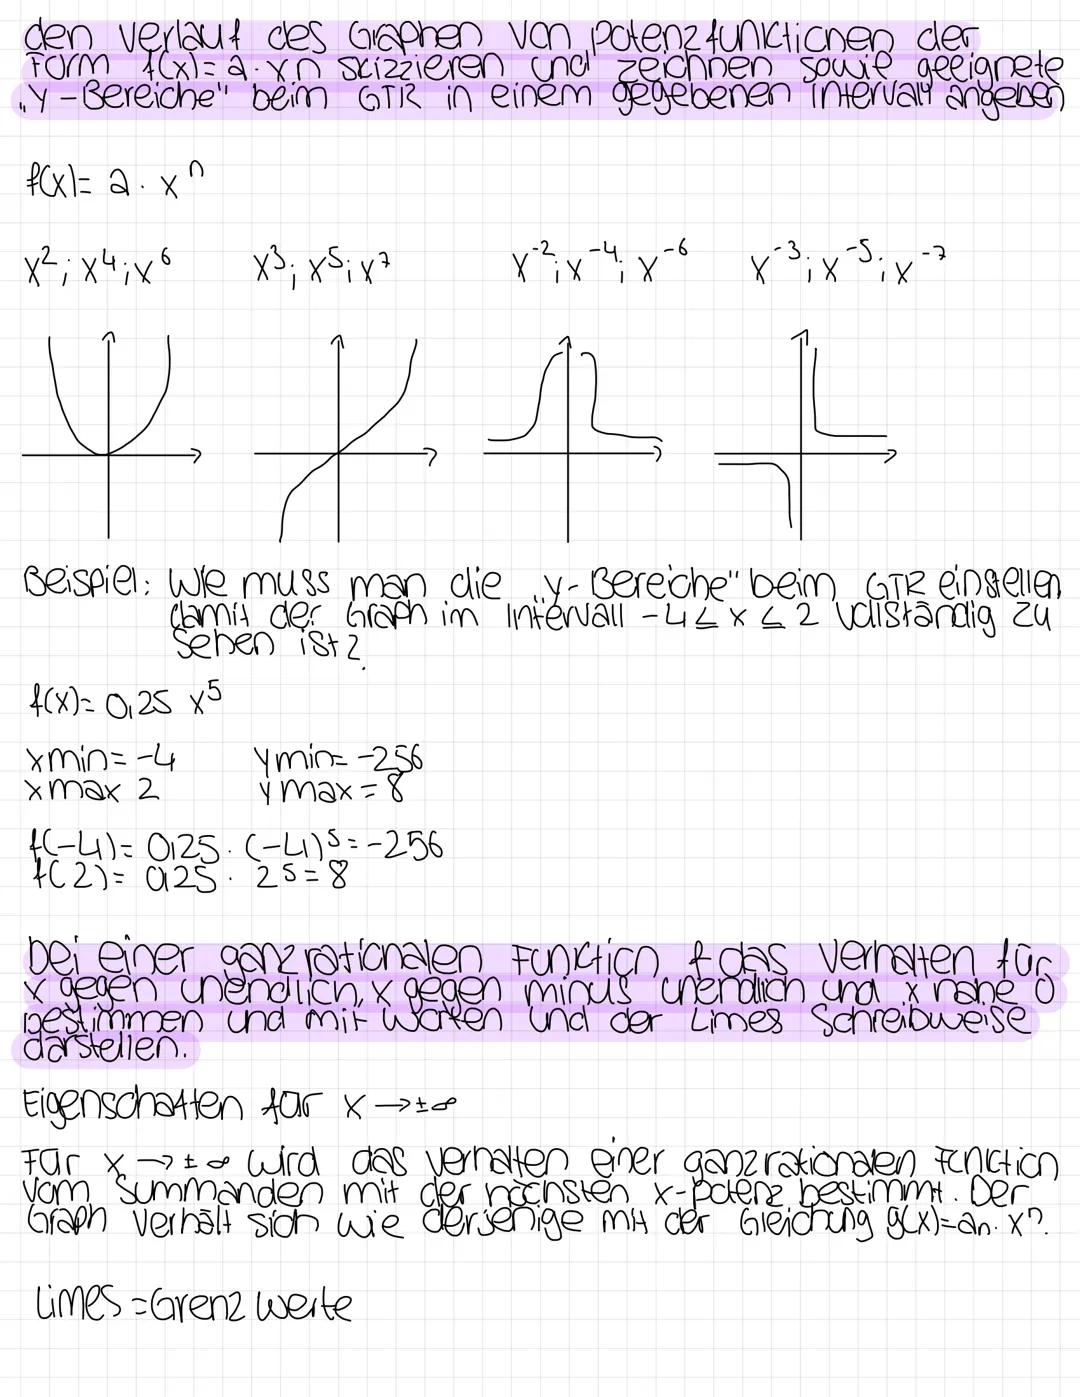 den Verlauf des Graphen von Potenzfunktionen der
Form f(x)= a·xn skizzieren und zeichnen sowie geeignete
„Y-Bereiche" beim GTR in einem gegebenen Intervall angeben
f(x)= a · xⁿ
x²; x⁴; x⁶ x³; x⁵; x⁷ x⁻²; x⁻⁴; x⁻⁶ x⁻³; x⁻⁵; x⁻⁷
Beispiel: Wie muss man die „y-Bereiche" beim GTR einstellen,
damit der Graph im Intervall -4 ≤ x ≤ 2 vollständig zu
sehen ist?
f(x)= 0,25 x⁵
xmin= -4 ymin= -256
xmax 2 ymax = 8
f(-4)= 0,25 · (-4)⁵= -256
f(2)= 0,25 · 2⁵= 8
bei einer ganzrationalen Funktion f das Verhalten für
x gegen unendlich, x gegen minus unendlich und x nahe 0
bestimmen und mit Worten und der Limes Schreibweise
darstellen.
Eigenschaften für x → ±∞
Für x → ±∞ wird das Verhalten einer ganzrationalen Funktion
vom Summanden mit der höchsten x-Potenz bestimmt. Der
Graph verhält sich wie derjenige mit der Gleichung g(x)=an·xⁿ.
Limes = Grenzwerte